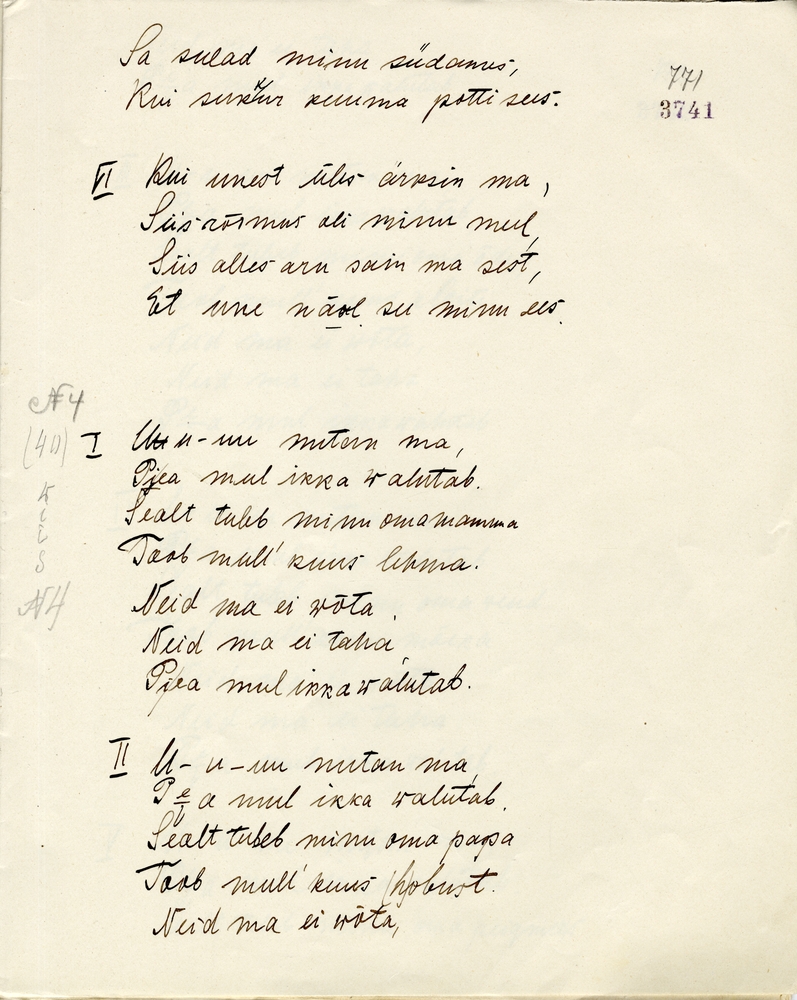 Sa sulad minu südames,
Kui sukkur kuuma potti sees.
771
3741
VI Kui unest üles ärksin ma,
Siis rõõmus oli minu meel,
Siis alles aru sain ma sest,
Et une näol su minu ees.
N 4
(40)
W
i
i
s
N4
I U u-uu nutan ma,
Pjea mul ikka walutab.
Sealt tuleb minu oma mamma
Toob mull' kuus lehma.
Neid ma ei wõta,
Neid ma ei taha,
Pjea mul ikka walutab.
II U- u-uu nutan ma,
Pea mul ikka walutab.
Sealt tuleb minu oma papa
Toob mull' kuus (h)obust.
Neid ma ei wõta,